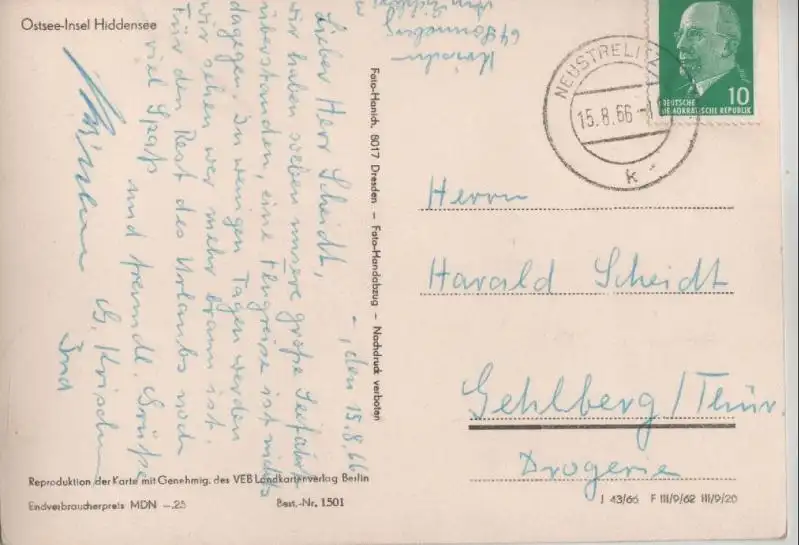 Ostsee-Insel Hiddensee
Krischn
64 Sonneberg
-, den 15.8.66
Lieber Herr Scheidt,
wir haben soeben unsere große Seefahrt
überstanden, eine Flugreise ist nichts
dagegen. In wenigen Tagen werden
wir sehen wer mehr braun ist.
Für den Rest des Urlaubs noch
viel Spaß
und freundl. Grüße
G. Krischn
Foto-Hanich, 8017 Dresden — Foto-Handabzug — Nachdruck verboten
NEUSTRELITZ
15.8.66
k
DEUTSCHE
DEMOKRATISCHE REPUBLIK
10
Herrn
Harald Scheidt
Gehlberg/Thür.
Drogerie
Reproduktion der Karte mit Genehmig. des VEB Landkartenverlag Berlin
Endverbraucherpreis MDN —.25
Best.-Nr. 1501
I 43/66 F III/9/62 III/9/20